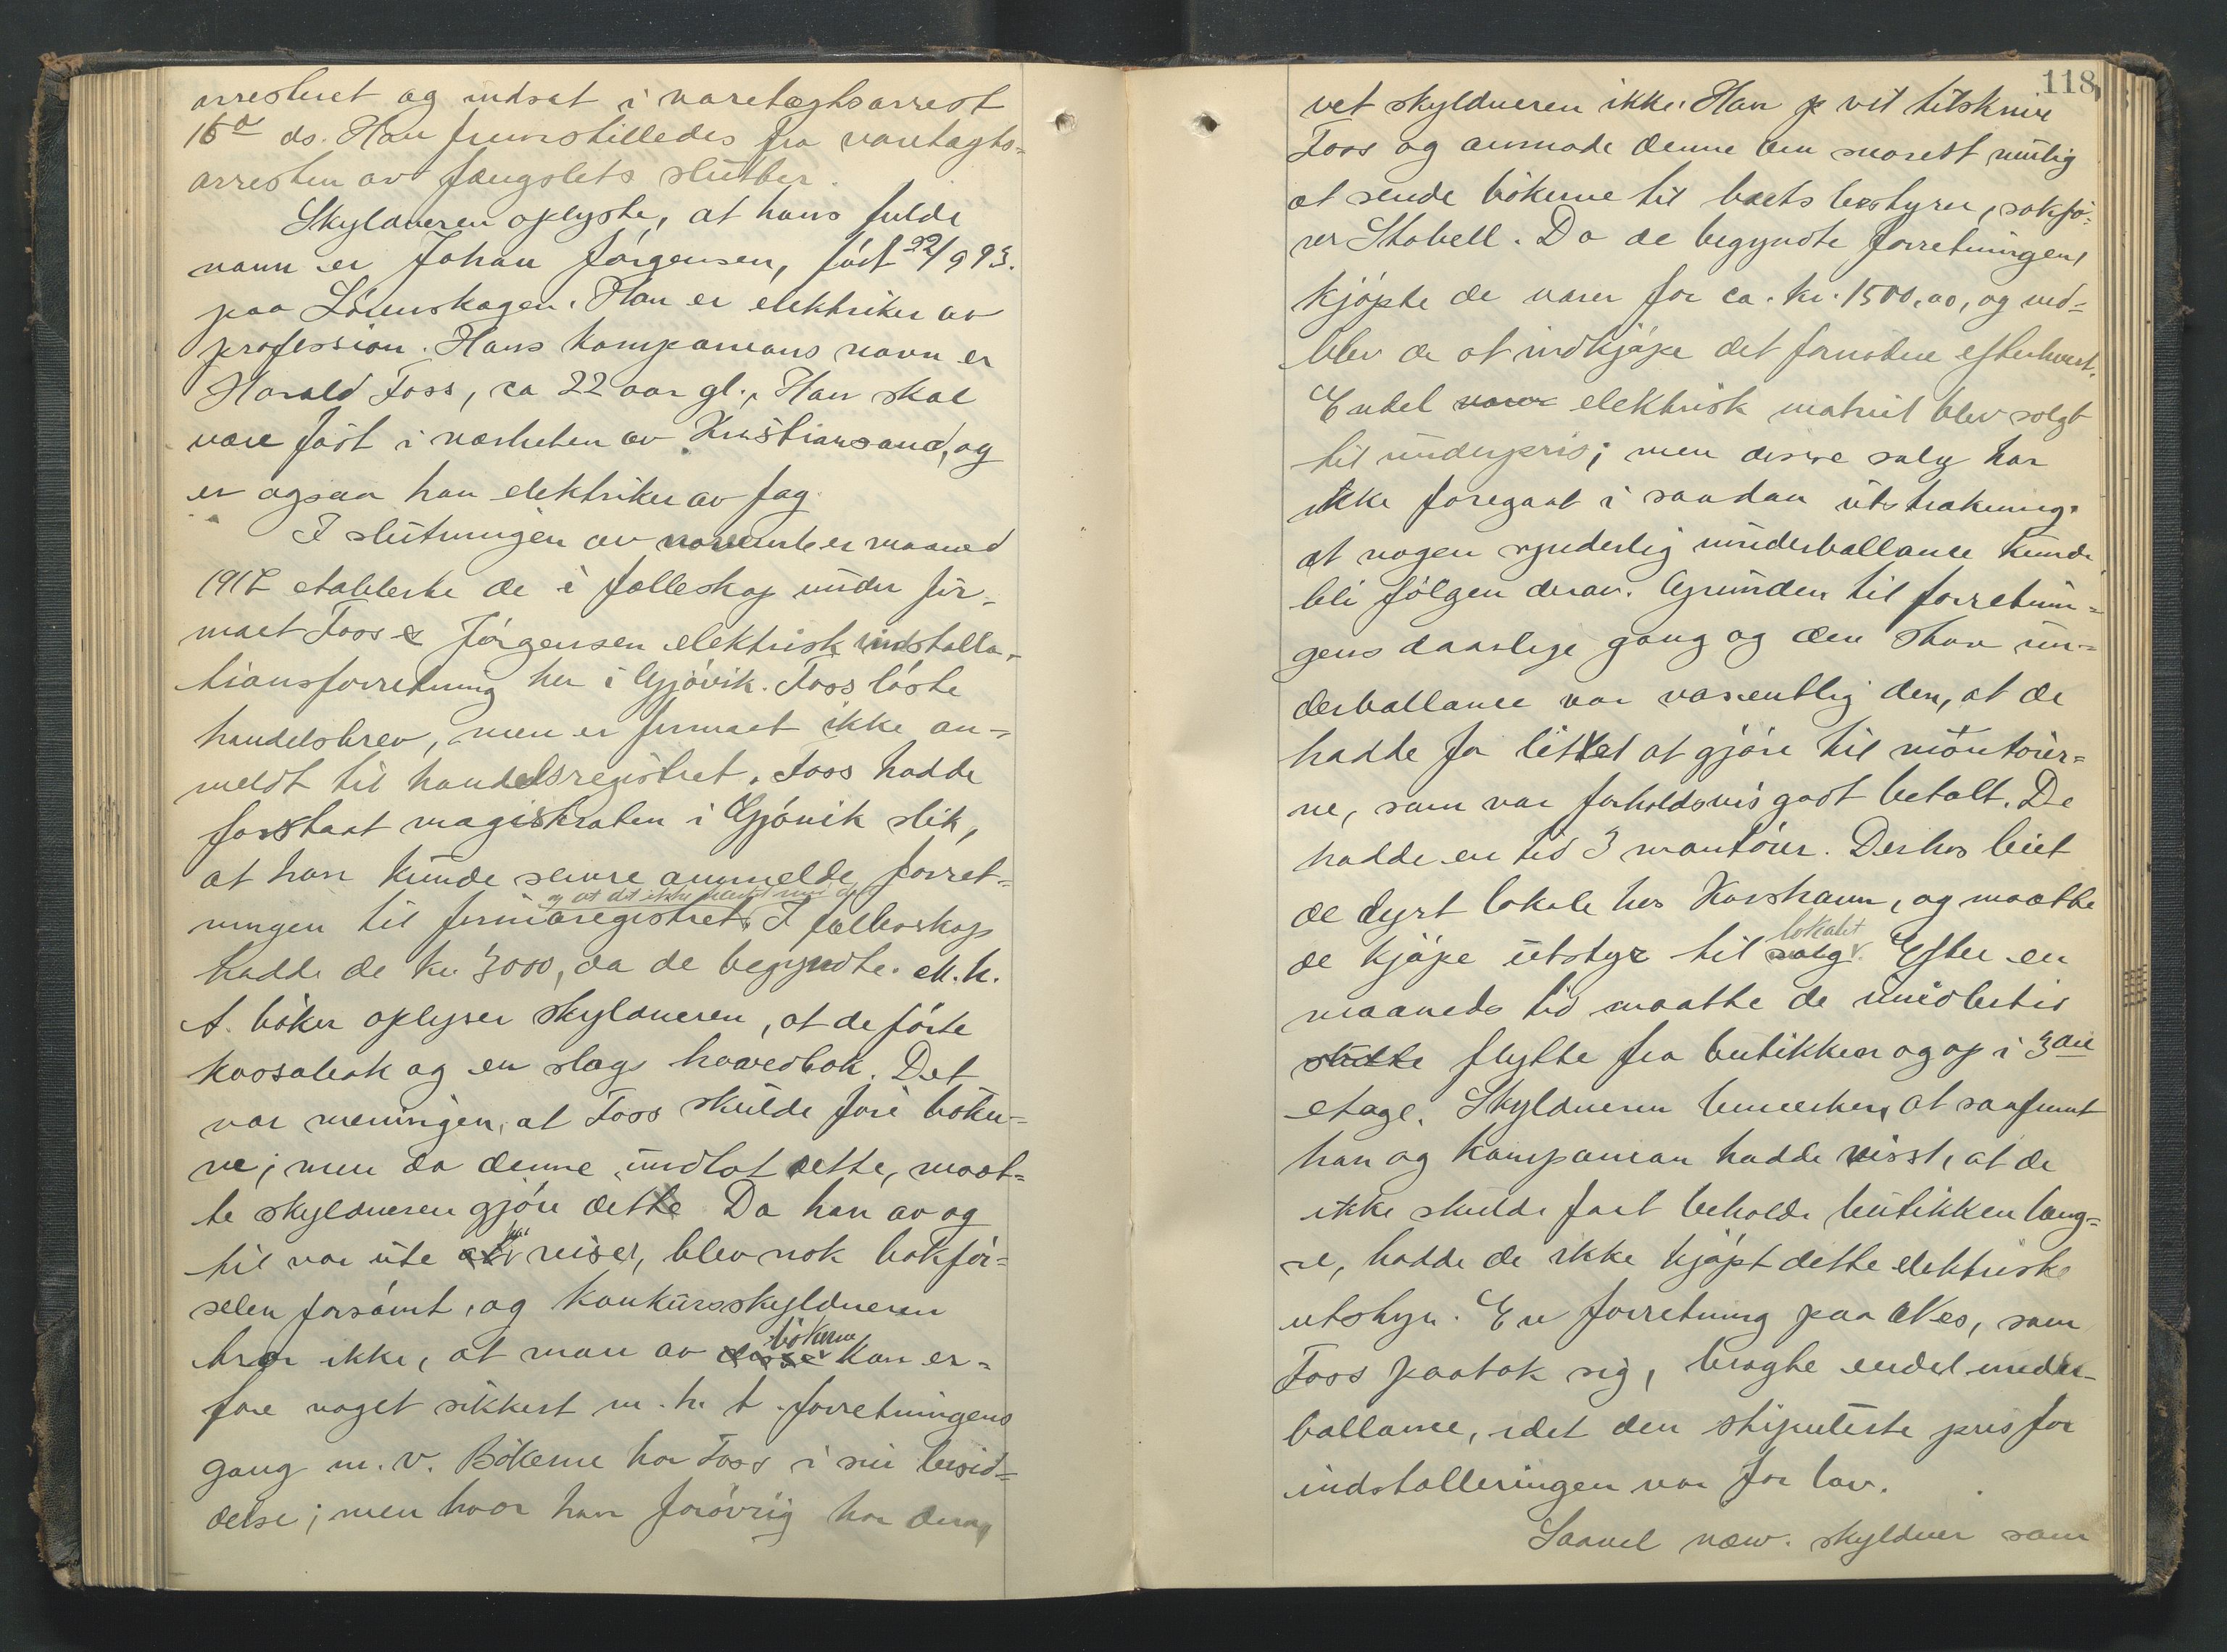 arrestert og indsat i varetægtsarrest
16de ds. Han fremstilledes fra varetægts-
arresten av fængslets slutter.
Skyldneren oplyste, at hans fulde
navn er Johan Jörgensen, født 22/9 93.
paa Lörenskogen. Han er elektriker av
profession. Hans kompanions navn er
Harald Foss, ca 22 aar gl., Han skal
være født i nærheten av Kristiansand, og
er ogsaa han elektriker av fag.
I slutningen av november maaned
1917 etablerte de i fælleskap under fir-
maet Foss & Jörgensen elektrisk indstalla-
tionsforretning her i Gjövik. Foss löste
handelsbrev, men er firmaet ikke an-
meldt til handelsregistret. Foss hadde
forstaat magistraten i Gjövik slik,
at han kunde senere anmelde forret-
og at det ikke hastet med det
ningen til firmaregistret. I fælleskap
hadde de kr. 3000, da de begyndte. M. h.
t. böker oplyser skyldneren, at de förte
kassabok og en slags hovedbok. Det
var meningen, at Foss skulde före böker-
ne; men da denne undlot dette, maat-
te skyldneren gjöre dette. Da han av og
til var ute paa reiser, blev nok bokför-
selen forsömt, og konkursskyldneren
tror ikke, at man av disse bökerne kan er-
fare noget sikkert m. h. t. forretningens
gang m. v. Bökerne har Foss i sin besid-
delse; men hvor han forövrig har dem,
118
vet skyldneren ikke. Han vil tilskrive
Foss og anmode denne om snarest mulig
at sende bökerne til boets bestyrer, sakfö-
rer Stabell. Da de begyndte forretningen,
kjöpte de varer for ca. kr. 1500,00, og ved-
blev de at indkjöpe det fornødne efterhvert.
Endel varer elektrisk matriel blev solgt
til underpris; men disse salg har
ikke foregaat i saadan utstrækning,
at nogen synderlig underballance kunde
bli fölgen derav. Grunden til forretnin-
gens daarlige gang og den store un-
derballance var væsentlig den, at de
hadde for littet at gjöre til montörer-
ne, som var forholdsvis godt betalt. De
hadde en tid 3 montörer. Derhos leiet
de dyrt lokale hos Korshavn, og maatte
de kjöpe utstyr til salg lokalet. Efter en
maaneds tid maatte de imidlertid
slutte flytte fra butikken og op i 3die
etage. Skyldneren bemerker, at saafremt
han og kompanion hadde visst, at de
ikke skulde faat beholde butikken læng-
re, hadde de ikke kjöpt dette elektriske
utstyr. En forretning paa Nes, som
Foss paatok sig, bragte endel under-
ballance, idet den stipulerte pris for
indstalleringen var for lav.
Saavel næv. skyldner som